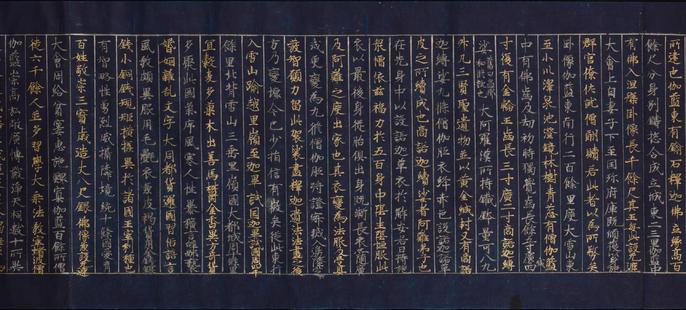 所建也伽藍東有鍮石釋迦佛立像高百
餘尺分身別鑄揔合成立城東二三里伽藍中
有佛入涅槃臥像長千餘尺其王每此設无遮
大會上自妻子下至國珎府庫既傾復以身施
群官僚佐就僧酬贖若此者以為所務矣
臥像伽藍東南行二百餘里度大雪山東
至小川澤泉池澄鏡林樹青葱有僧伽藍
中有佛齒及劫初時獨覺齒長餘五寸廣減四
寸復有金輪王齒長三寸廣二寸商諾迦縛
娑大阿羅漢所持鐵鉢量可八九
升凡三賢聖遺物並以黃金緘封又有商諾
迦縛娑九條僧伽胝衣絳赤色設諾迦草
皮之所績成也商諾迦縛娑者阿難弟子也
在先身中以設諾迦草衣於解安居日持施
衆僧依茲福力於五百身中陰生陰恒服此
衣以最後身從胎俱出身既漸長衣亦隨廣
及阿難之度出家也其衣變為法服及受具
戒更變為九條僧伽胝將證寂滅入邊際定
發智願力留此袈裟盡釋迦遺法法盡之後
方乃變壞今已少損信有徵矣從此東行
入雪山踰越黑嶺至迦畢試國迦畢試國周四千
餘里北背雪山三垂黑嶺國大都城周十餘里
宜穀麦多菓木出善馬欝金香異方奇貨
多聚此國氣序風寒人性暴獷言辭鄙褻
婚姻雜亂文字大同都貨邏國習俗語言
風教頗異服用毛㲲衣兼皮褐貨用金錢銀
錢小銅錢規矩摸樣異於諸國王窣利種也
有智略性勇烈威懾隣境統十餘國愛育
百姓敬崇三寶歲造丈八尺銀佛像兼設无遮
大會周給貧窶惠施鰥寡伽藍百餘所僧
徒六千餘人並多習學大乘法教窣堵波僧
伽藍崇高弘敞廣博嚴淨天祠數十所異